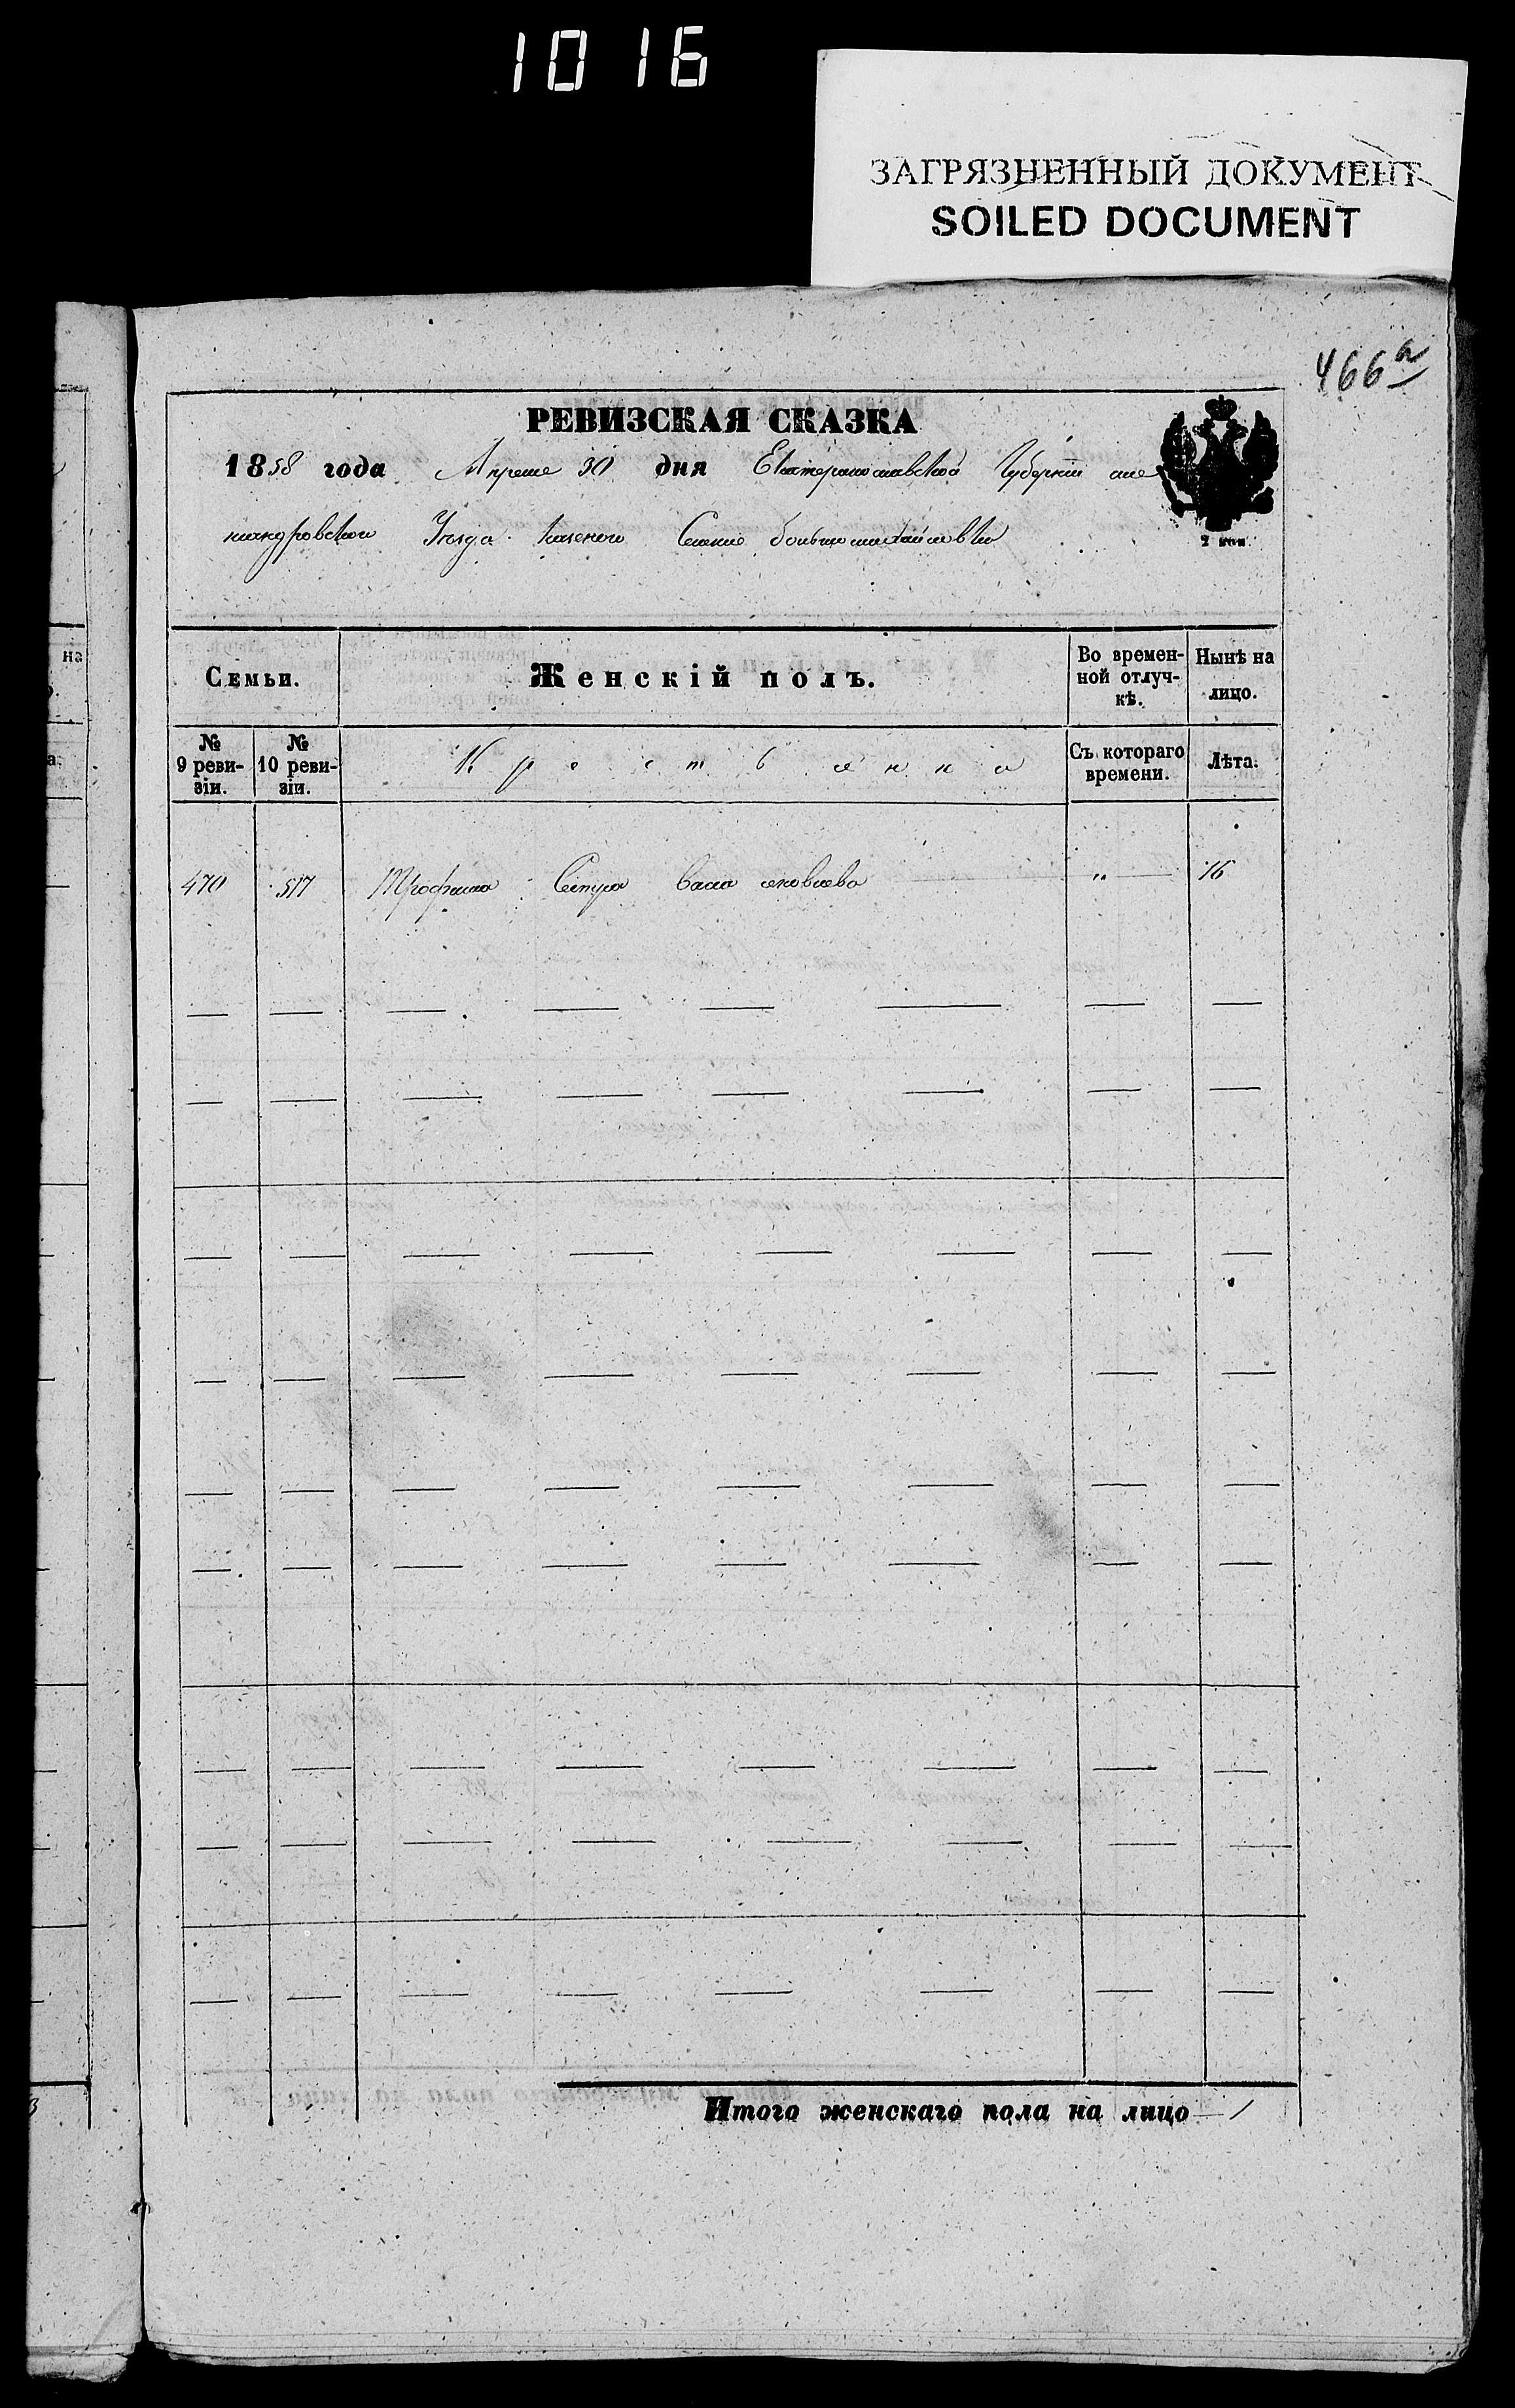 1016
ЗАГРЯЗНЕННЫЙ ДОКУМЕНТ
SOILED DOCUMENT
466а
РЕВИЗСКАЯ СКАЗКА
1858 года Апреля 30 дня Екатеринославской Губернии але
ксандровского Уезда Казенного Селения большемихайловки
2 коп.
Семьи.
Женскій полъ.
Во времен-
ной отлуч-
кѣ.
Нынѣ на
лицо.
№
9 реви-
зіи.
№
10 реви-
зіи.
Съ котораго
времени.
Лѣта.
470 517 Трофима яковлева „ 16
Итого женскаго пола на лицо — 1